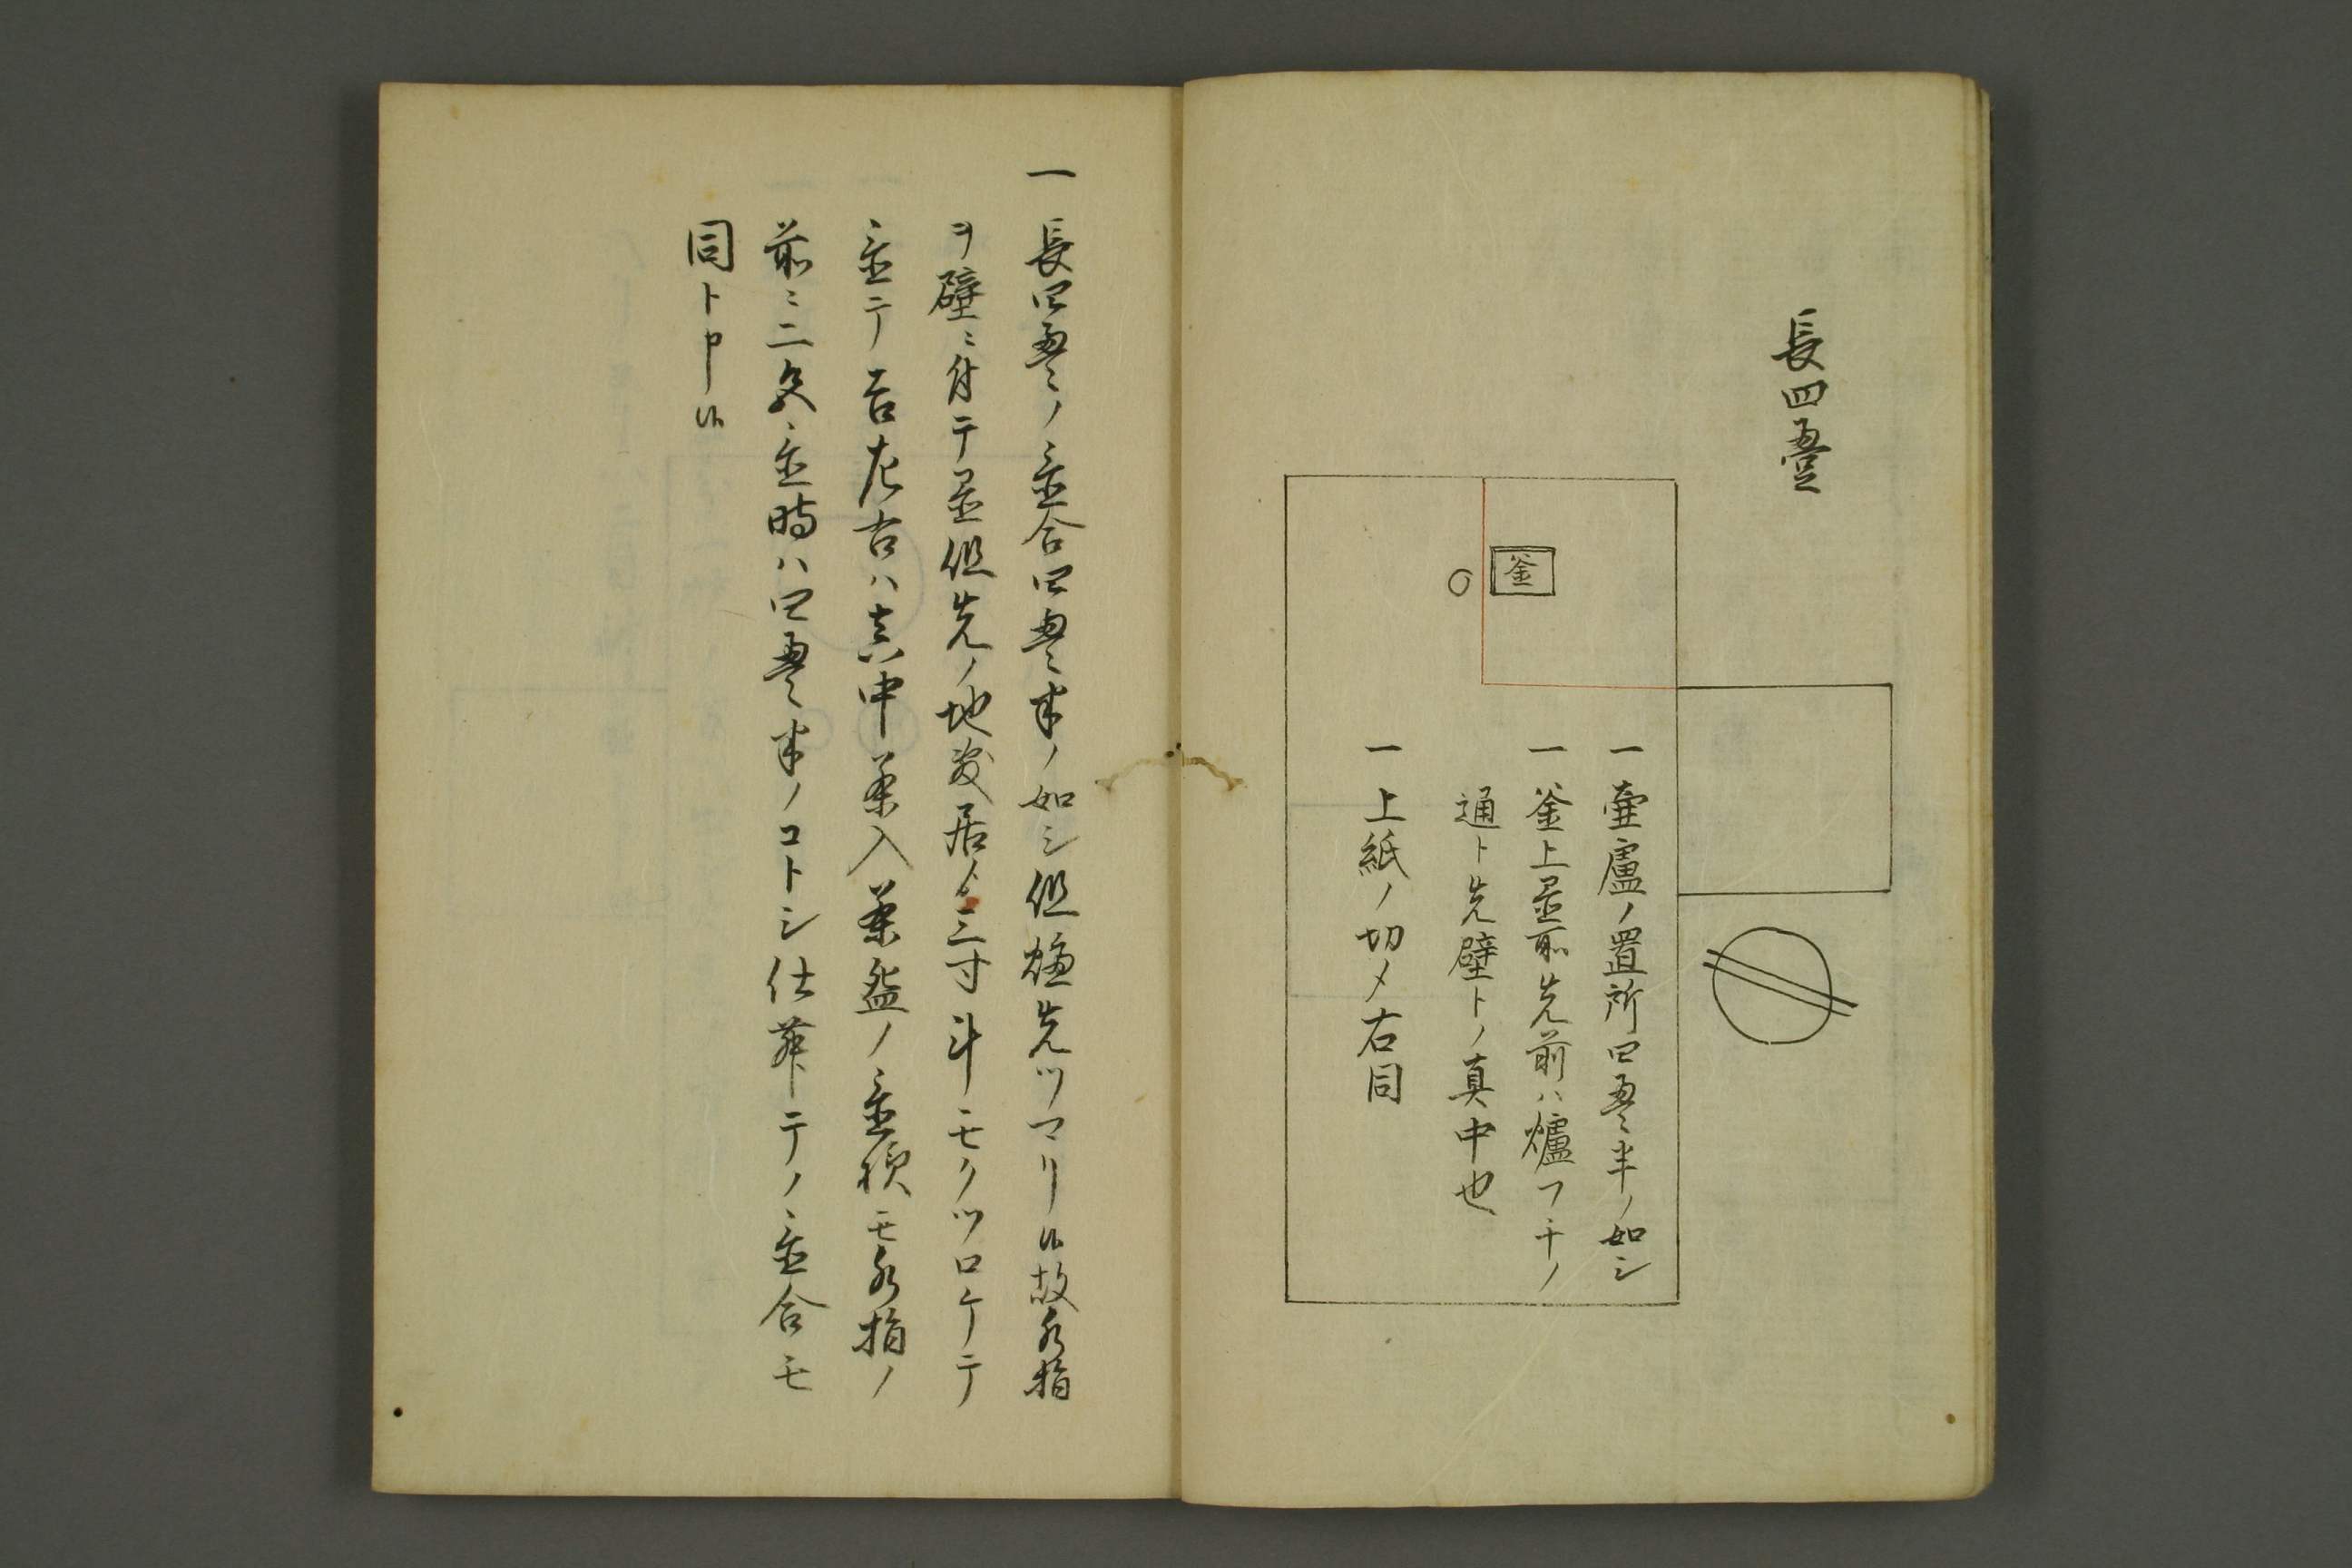 長四畳
釜
一 壷盧ノ置所四畳半ノ如シ
一 釜上置所先前ハ爐フチノ
通ト先壁トノ真中也
一 上紙ノ切メ右同
一 長四畳ノ置合四畳半ノ如シ但爐先ツマリ候故水指
ヲ壁ニ付テ置但先ノ地敷居ノ三寸斗モクツロケテ
置テ吉左右ハ真中茶入茶盌ノ置様モ水指ノ
前ニ二ツ置時ハ四畳半ノコトシ仕廻テノ置合モ
同ト申候